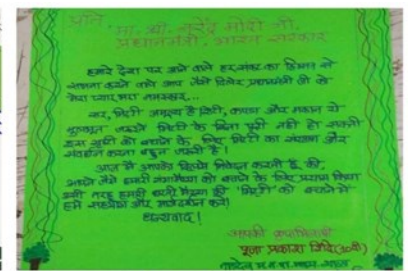 प्रति,
मा. श्री. नरेंद्र मोदी जी,
प्रधानमंत्री, भारत सरकार
हमारे देश पर आने वाले हर संकट का हिम्मत से
सामना करने वाले आप जैसे दिलेर प्रधानमंत्री जी को
मेरा प्यार भरा नमस्कार...
सर, मिट्टी अमूल्य है रोटी, कपडा और मकान ये
मूलभूत जरूरते मिट्टी के बिना पूरी नही हो सकती
इस सृष्टी को बचाने के लिए मिट्टी का संरक्षण और
संवर्धन करना बहुत जरूरी है!
आज मैं आपसे निवेदन करती हूँ, की,
आपने जैसे हमारी गंगामैय्या को बचाने के लिए प्रयास किया
उसी तरह हमारी धरती मैय्या की 'मिट्टी' को बचाने में
हमे सहयोग और मार्गदर्शन करे!
धन्यवाद!
आपकी
पूजा प्रकाश